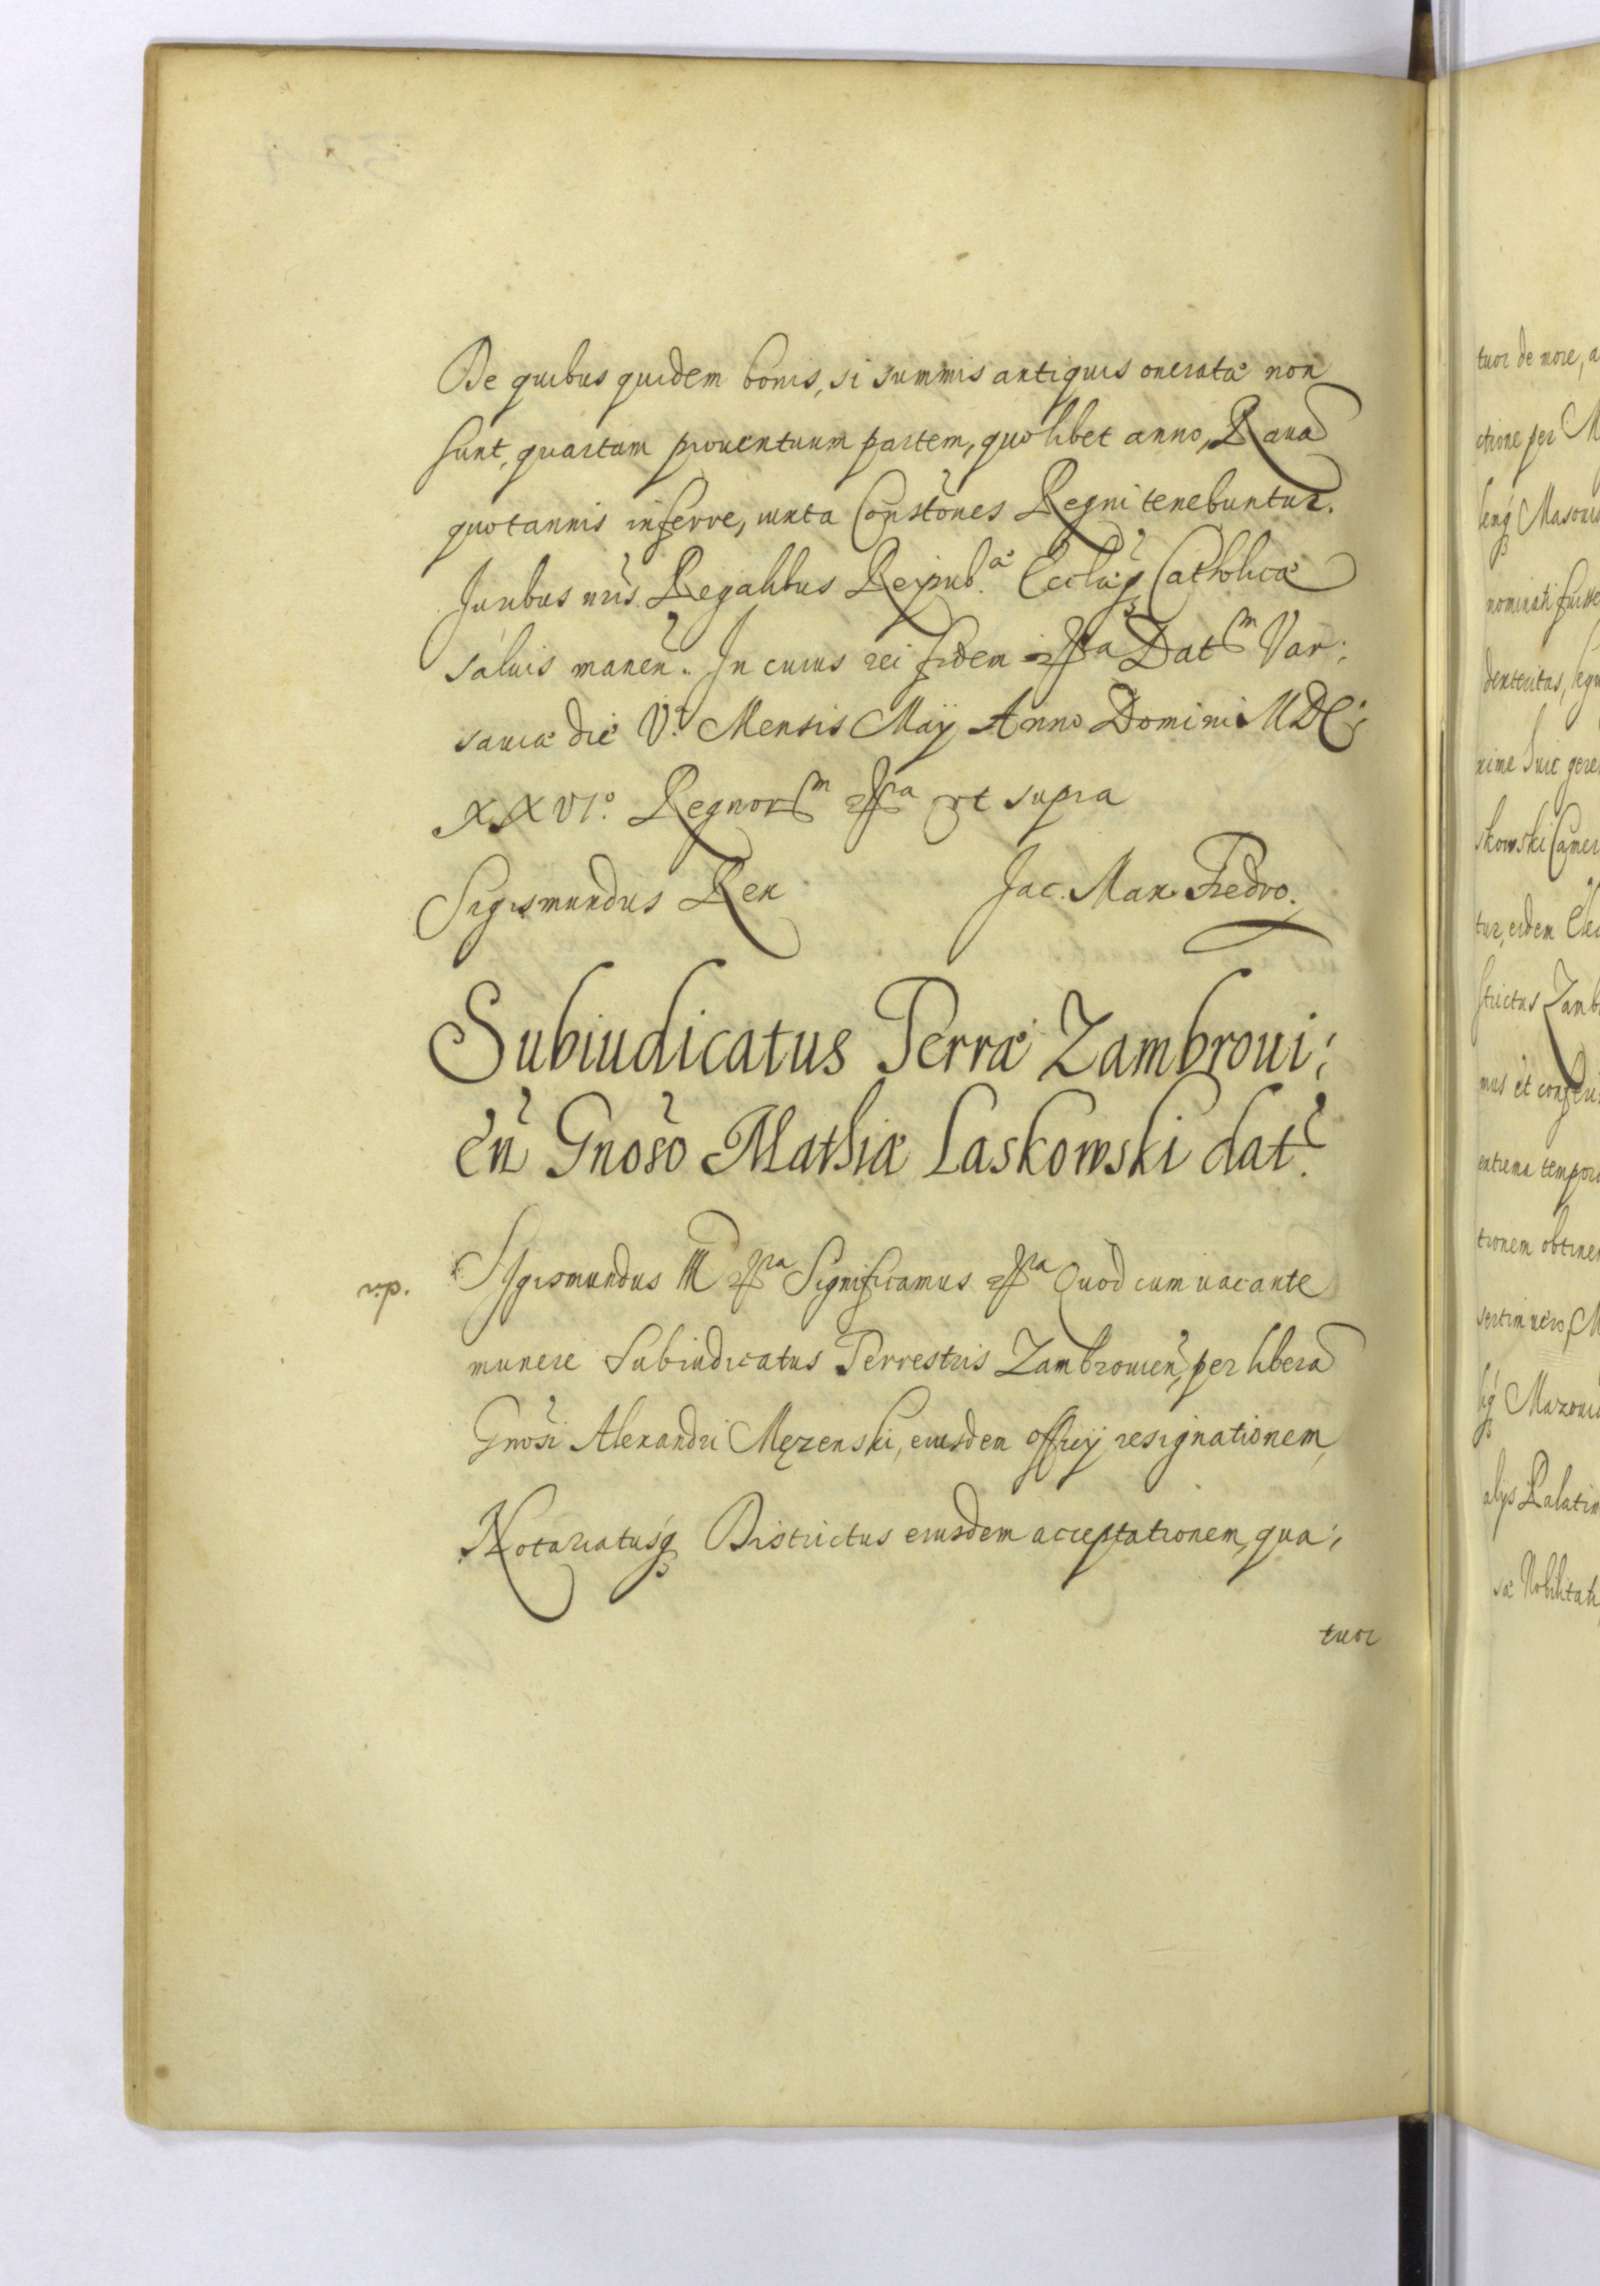 De quibus quidem bonis, si summis antiquis onerata non
sunt, quartam prouentuum partem, quolibet anno, Raua
quotannis inferre, iuxta Constőnes Regni tenebuntur.
Juribus nřis Regalibus Reipub.ᵃᵉ Ecclæq́ Catholicæ
saluis maneñ. In cuius rei fidem etc̃ᵃ Datᵐ Var:
sauiæ die V.ᵃ Mensis Maÿ Anno Domini MDC:
XXVIº. Regnorᵐ etc̃ᵃ ut supra
Sigismundus Rex Jac. Max. Fredro.
Subiudicatus Terræ Zambroui:
eñ Gnoso Mathiæ Laskowski dat̃.
v.p. Sigismundus III etc̃ᵃ Significamus etc̃ᵃ Quod cum uacante
munere Subiudicatus Terrestris Zambrouieñ, per liberā
Gnosi Alexandri Męzenski, eiusdem officÿ resignationem,
Notariatusq́ Districtus eiusdem acceptationem, qua:
tuor
tuor de more, a
ctione per M
leñq́ Masoui
nominati fuisse
dexteritas,
xime huic gere
skowski Camer
tur, eidem
strictus Zamb
mus et conferi
extrema tempor
tionem obtine
sertim uero, M
Mazoui
alijs Palatin
sæ Nobilitati